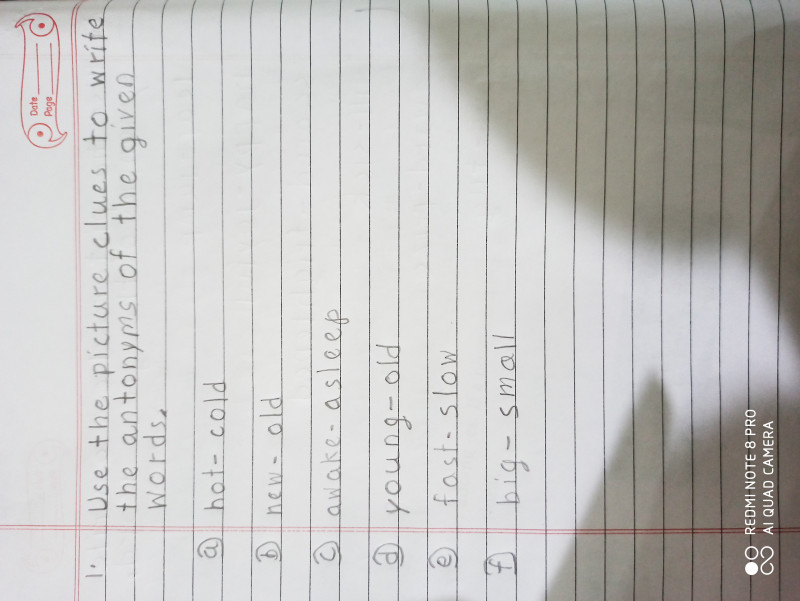 Date
Page
1. Use the picture clues to write
the antonyms of the given
words.
a) hot - cold
b) new - old
c) awake - asleep
d) young - old
e) fast - slow
f) big - small
REDMI NOTE 8 PRO
AI QUAD CAMERA